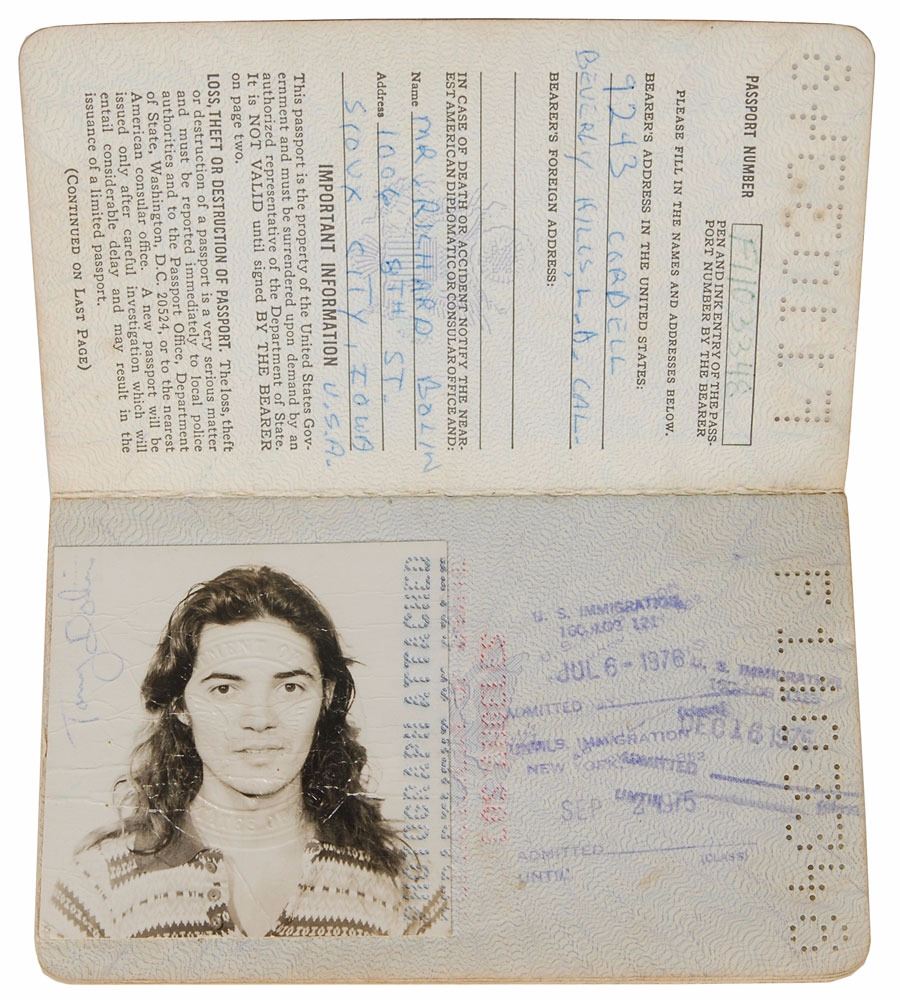 PASSPORT NUMBER
F1103348
PEN AND INK ENTRY OF THE PASS-
PORT NUMBER BY THE BEARER
PLEASE FILL IN THE NAMES AND ADDRESSES BELOW.
BEARER'S ADDRESS IN THE UNITED STATES:
9243 CORDELL
BEVERLY HILLS, L.A. CAL.
BEARER'S FOREIGN ADDRESS:
IN CASE OF DEATH OR ACCIDENT NOTIFY THE NEAR-
EST AMERICAN DIPLOMATIC OR CONSULAR OFFICE AND:
Name MR RICHARD BOLIN
Address 1006 8TH ST.
SIOUX CITY, IOWA
U.S.A.
IMPORTANT INFORMATION
This passport is the property of the United States Gov-
ernment and must be surrendered upon demand by an
authorized representative of the Department of State.
It is NOT VALID until signed BY THE BEARER
on page two.
LOSS, THEFT OR DESTRUCTION OF PASSPORT. The loss, theft
or destruction of a passport is a very serious matter
and must be reported immediately to local police
authorities and to the Passport Office, Department
of State, Washington, D.C. 20524, or to the nearest
American consular office. A new passport will be
issued only after careful investigation which will
entail considerable delay and may result in the
issuance of a limited passport.
(CONTINUED ON LAST PAGE)
U. S. IMMIGRATION
JUL 6 - 1976
U. S. IMMIGRATION
ADMITTED
DEC 16 197
U.S. IMMIGRATION
NEW YORK
ADMITTED
UNTIL
SEP 2 1975
ADMITTED
(CLASS)
UNTIL
F1103348
LOS ANGELES
Tommy Bolin